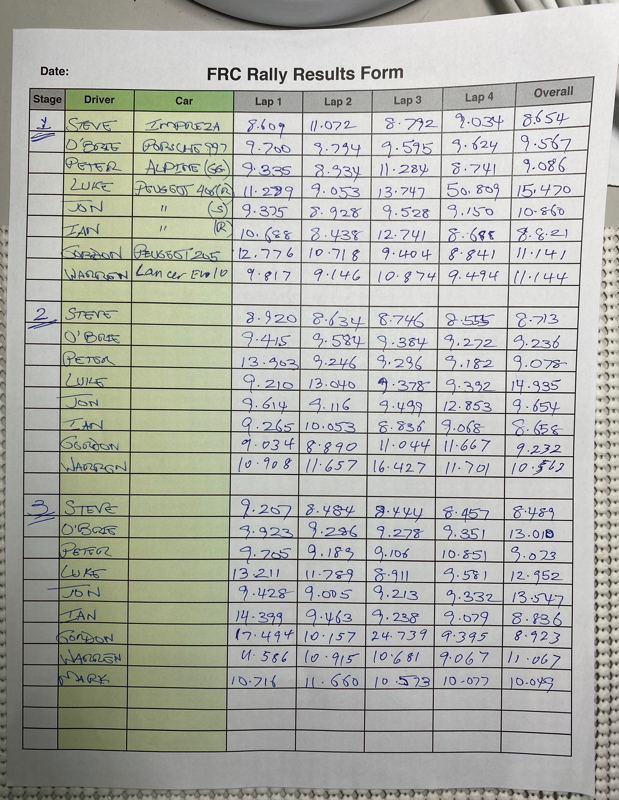 Date:
FRC Rally Results Form
Stage Driver Car Lap 1 Lap 2 Lap 3 Lap 4 Overall
1 STEVE IMPREZA 8.609 11.072 8.792 9.034 8.654
O'BRIE PORSCHE 997 9.700 8.794 9.595 9.624 9.567
PETER ALPINE (SS) 9.335 8.934 11.284 8.741 9.086
LUKE PEUGEOT 406(R) 11.289 9.053 13.747 50.809 15.470
JON " (S) 9.375 8.928 9.528 9.150 10.860
IAN " (R) 10.688 8.438 12.741 8.688 8.821
GORDON PEUGEOT 205 12.776 10.718 9.404 8.841 11.141
WARREN Lancer Evo 10 9.817 9.146 10.874 9.494 11.144
2 STEVE 8.920 8.634 8.746 8.555 8.713
O'BRIE 9.415 9.584 9.384 9.272 9.236
PETER 13.903 9.246 9.296 9.182 9.078
LUKE 9.210 13.040 9.378 9.392 14.935
JON 9.614 9.116 9.499 12.853 9.654
IAN 9.265 10.053 8.836 9.068 8.658
GORDON 9.034 8.890 11.044 11.667 9.232
WARREN 10.908 11.657 16.427 11.701 10.562
3 STEVE 9.207 8.484 8.444 8.457 8.489
O'BRIE 9.923 9.286 9.278 9.351 13.010
PETER 9.705 9.189 9.106 10.851 9.023
LUKE 13.211 11.789 8.911 9.581 12.952
JON 9.428 9.005 9.213 9.332 13.547
IAN 14.399 9.463 9.238 9.079 8.836
GORDON 17.494 10.157 24.739 9.395 8.923
WARREN 11.586 10.915 10.681 9.067 11.067
MARK 10.716 11.660 10.573 10.077 10.049